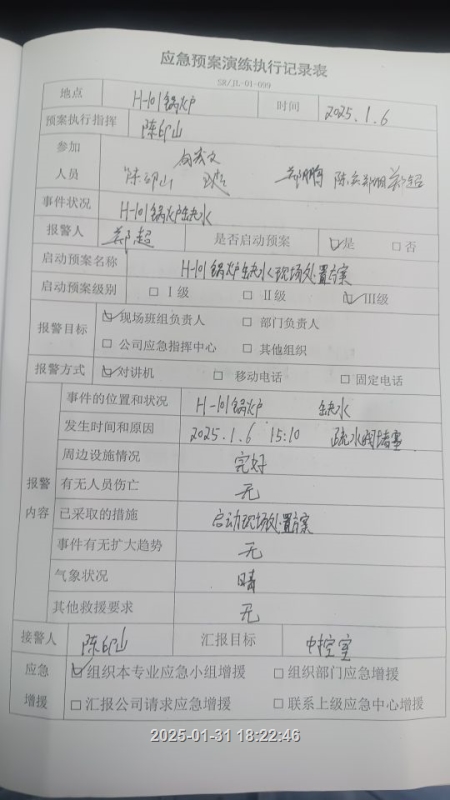 应急预案演练执行记录表
SR/JL-01-099
地点 H-101锅炉 时间 2025.1.6
预案执行指挥 陈印山
参加
人员 陈印山
事件状况 H-101锅炉缺水
报警人 郑超 是否启动预案 ☑是 □否
启动预案名称 H-101锅炉缺水现场处置方案
启动预案级别 □Ⅰ级 □Ⅱ级 ☑Ⅲ级
报警目标 ☑现场班组负责人 □部门负责人
□公司应急指挥中心 □其他组织
报警方式 ☑对讲机 □移动电话 □固定电话
报警内容
事件的位置和状况 H-101锅炉 缺水
发生时间和原因 2025.1.6 15:10 疏水阀堵塞
周边设施情况 完好
有无人员伤亡 无
已采取的措施 启动现场处置方案
事件有无扩大趋势 无
气象状况 晴
其他救援要求 无
接警人 陈印山 汇报目标 中控室
应急 ☑组织本专业应急小组增援 □组织部门应急增援
增援 □汇报公司请求应急增援 □联系上级应急中心增援
2025-01-31 18:22:46